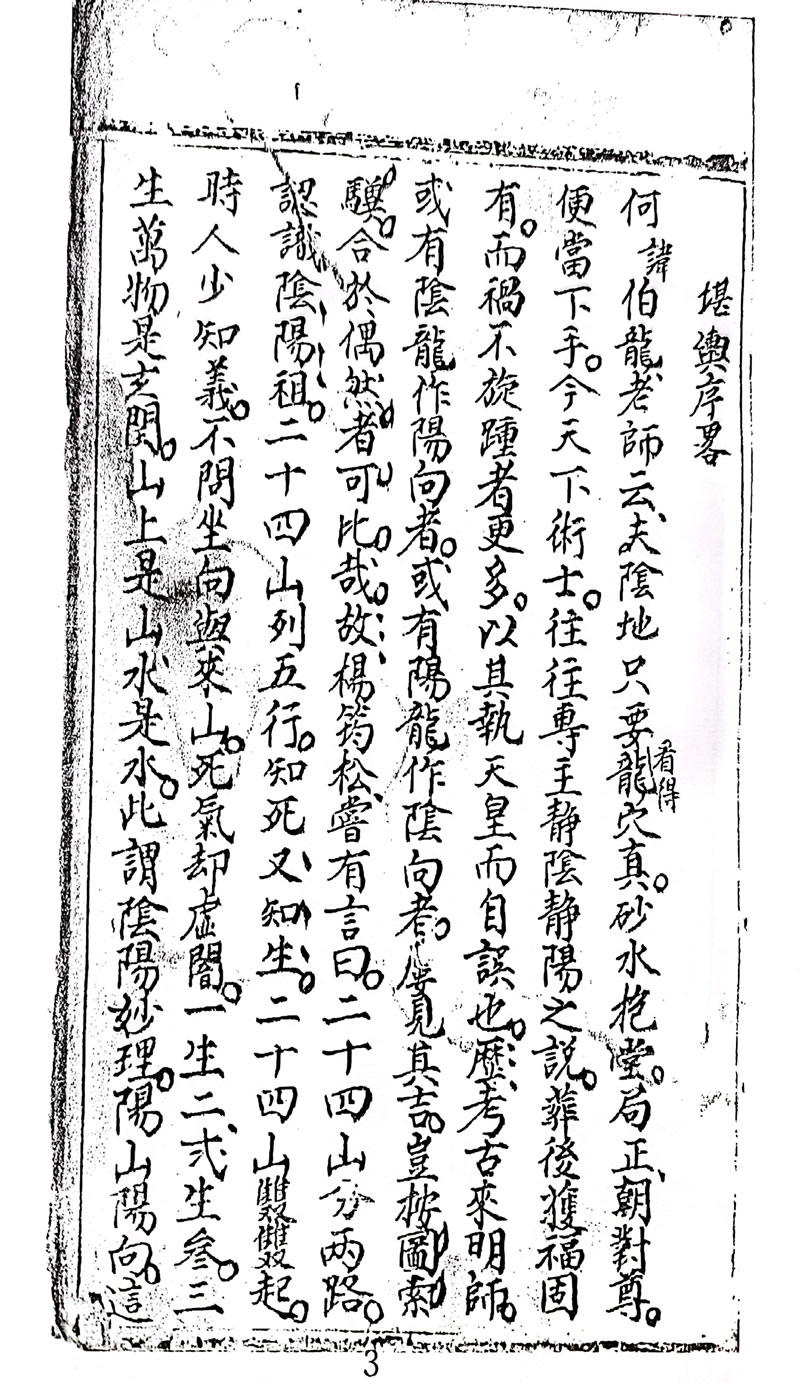 堪輿序畧
何諱伯龍老師云、夫陰地只要看得龍穴真。砂水抱堂。局正、朝對尊。
便當下手。今天下術士。往往專主静陰静陽之説。葬後獲福固
有。而禍不旋踵者更多。以其執天星而自誤也。歷考古來明師。
或有陰龍作陽向者。或有陽龍作陰向者。屡見其吉。豈按圖索
驥。合於偶然者可比哉。故楊筠松嘗有言曰。二十四山分兩路。
認識陰陽祖。二十四山列五行。知死又知生。二十四山雙雙起。
時人少知義。不問坐向與來山。死氣却虚闇。一生二、弍生叁。三
生萬物是玄関。山上是山水是水。此謂陰陽妙理。陽山陽向。這
3